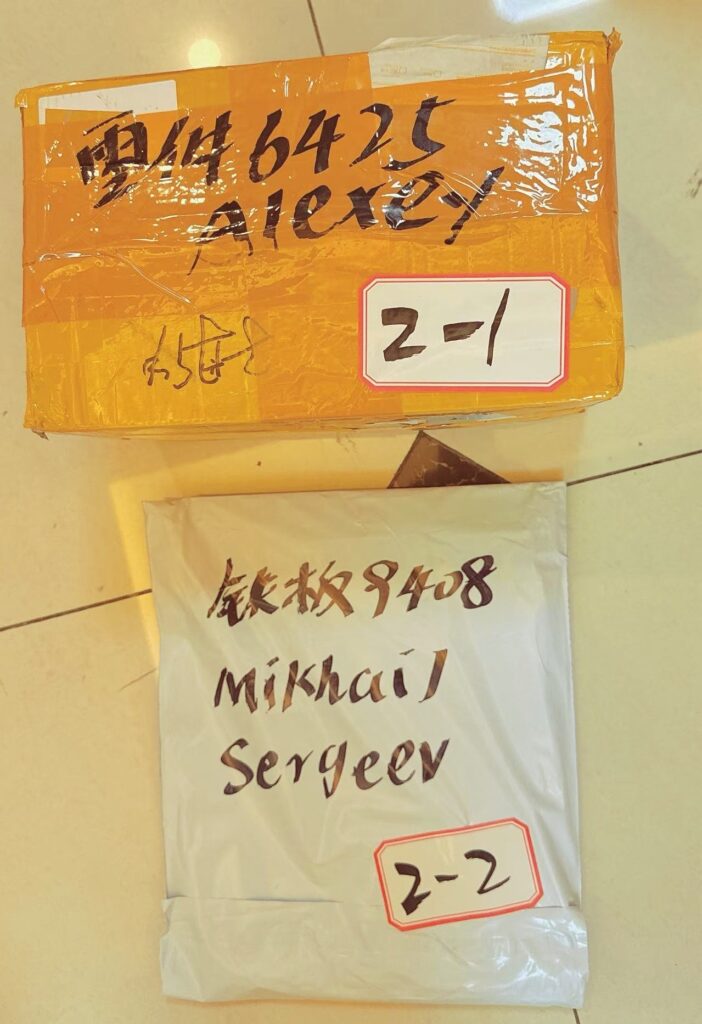 零件6425
Alexey
2-1
铁板9408
Mikhail
Sergeev
2-2